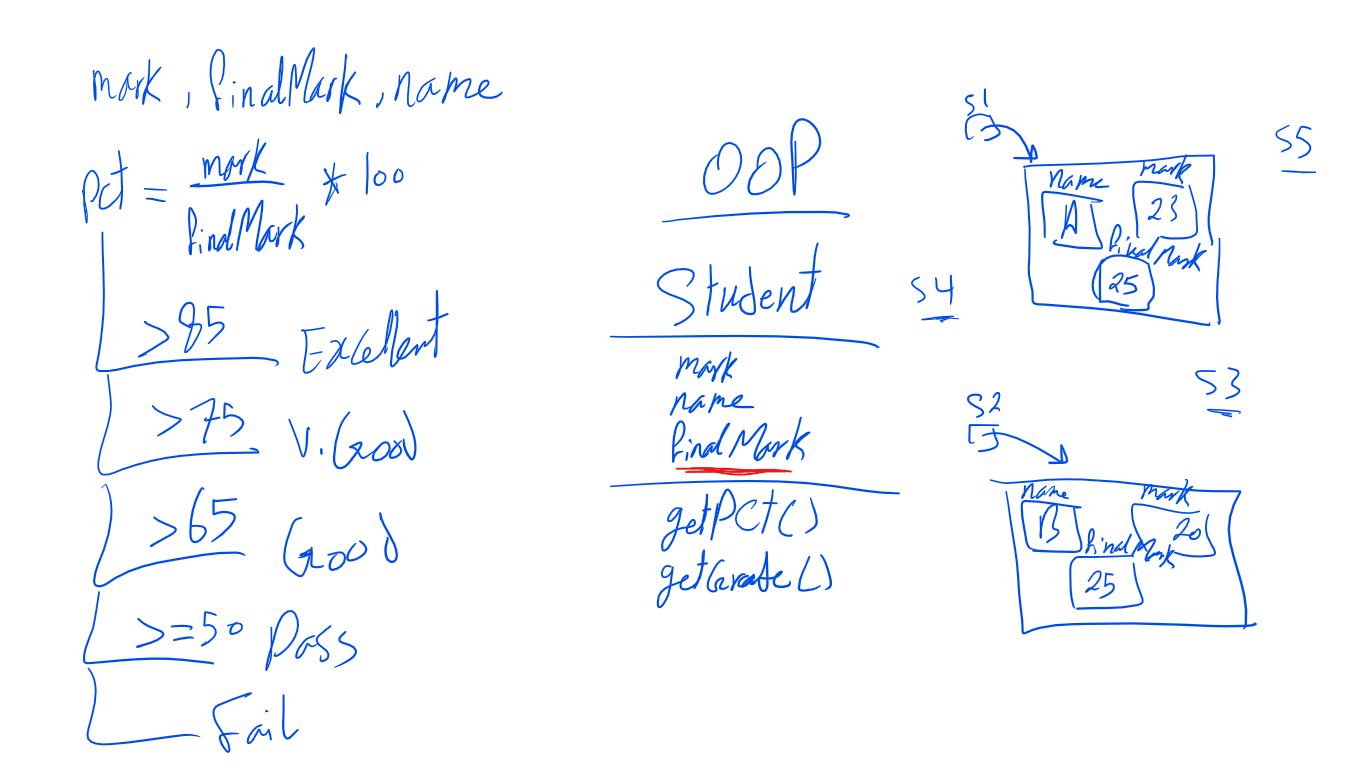 mark, finalMark, name
pct = mark / finalMark * 100
>85 Excellent
>75 V.Good
>65 Good
>=50 Pass
Fail
OOP
Student
mark
name
finalMark
getPct()
getGrade()
S1
name mark
A 23
finalMark
25
S5
S4
S3
S2
name mark
B 20
finalMark
25